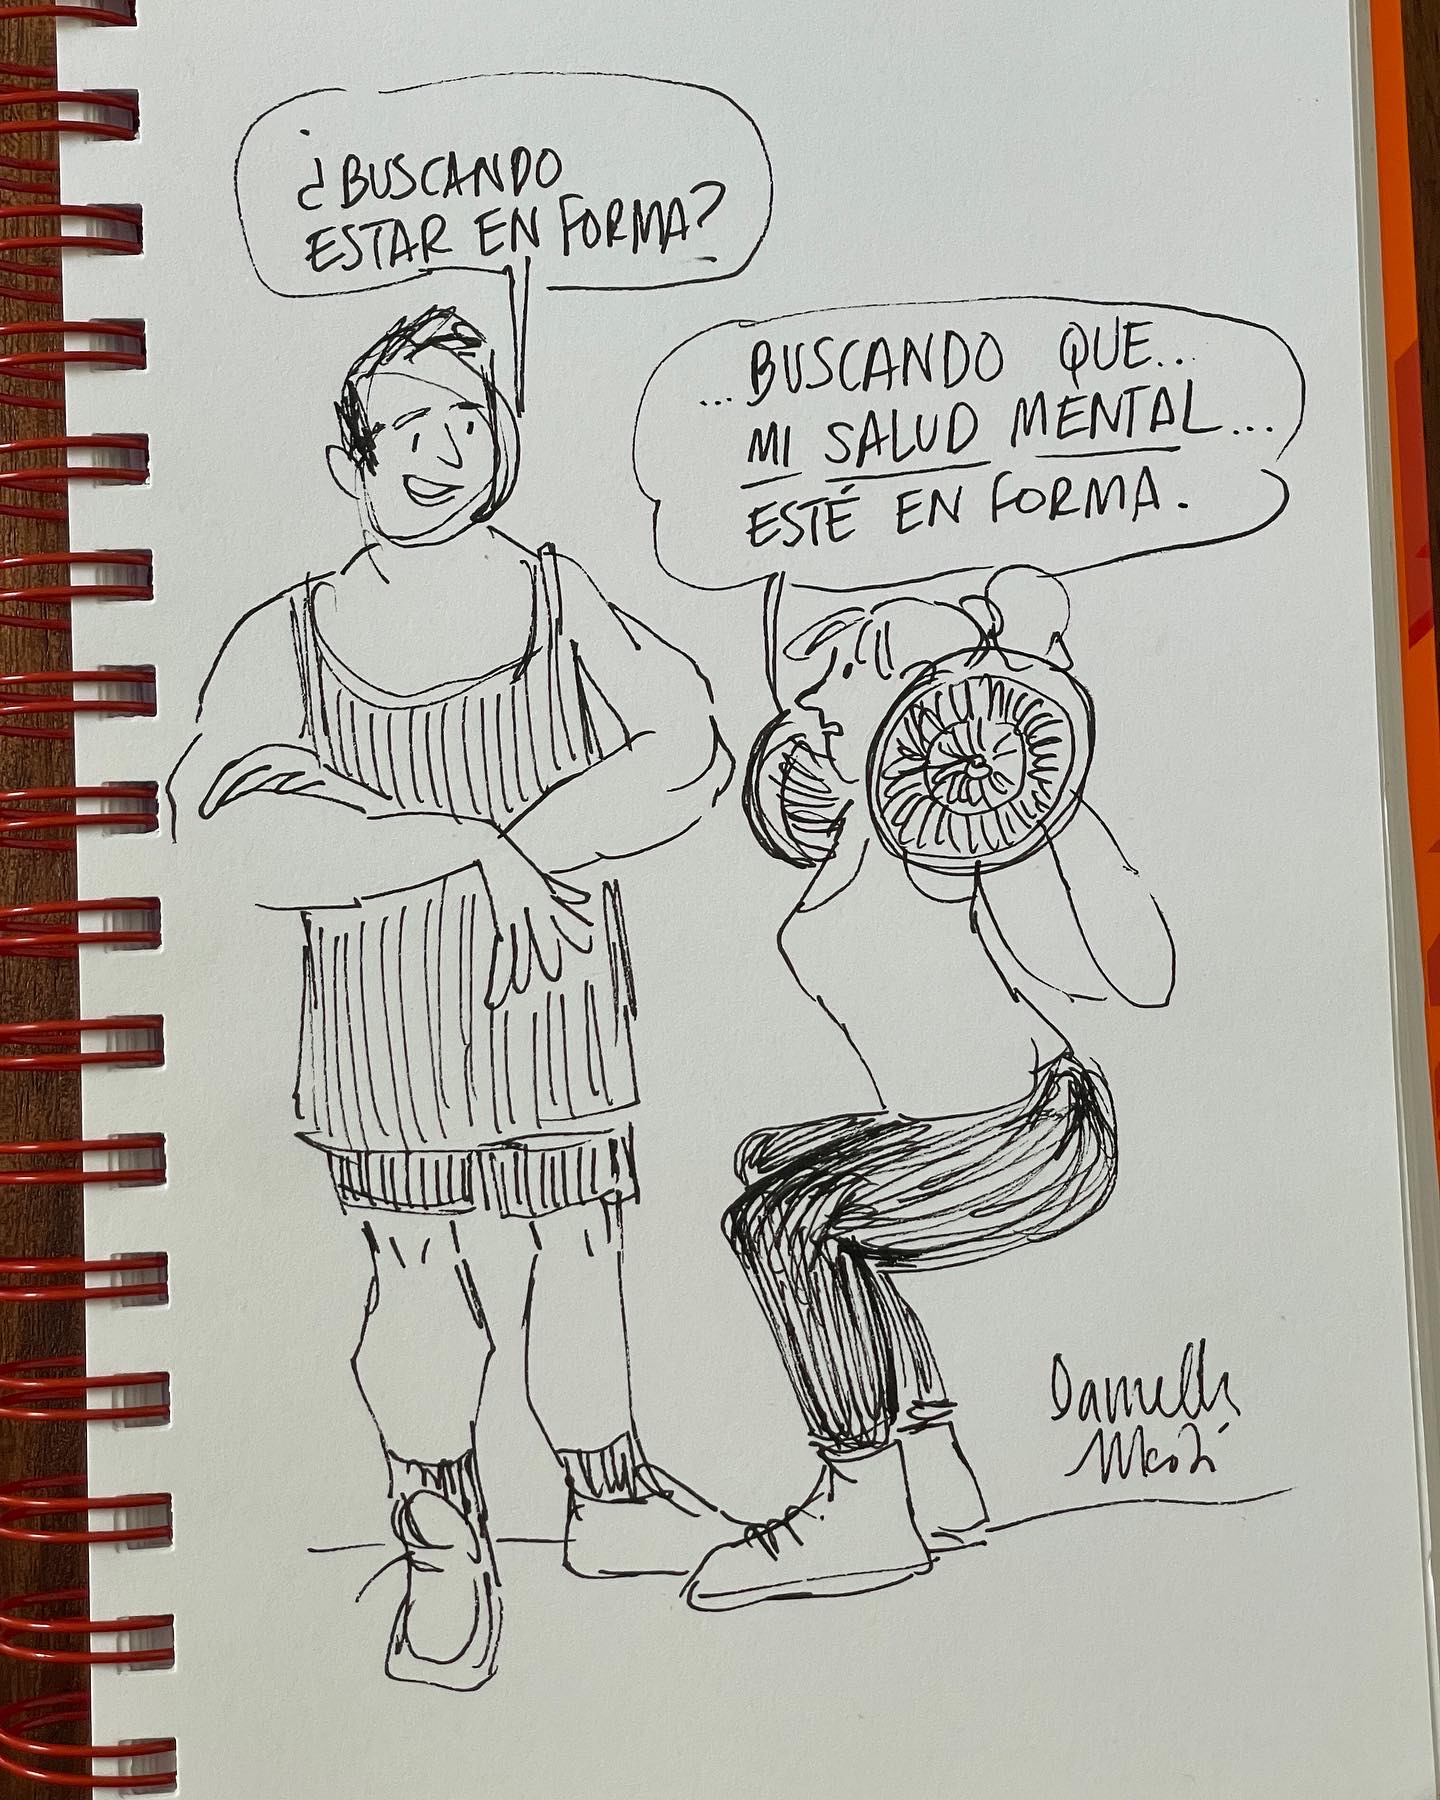 ¿BUSCANDO
ESTAR EN FORMA?
...BUSCANDO QUE..
MI SALUD MENTAL...
ESTÉ EN FORMA.